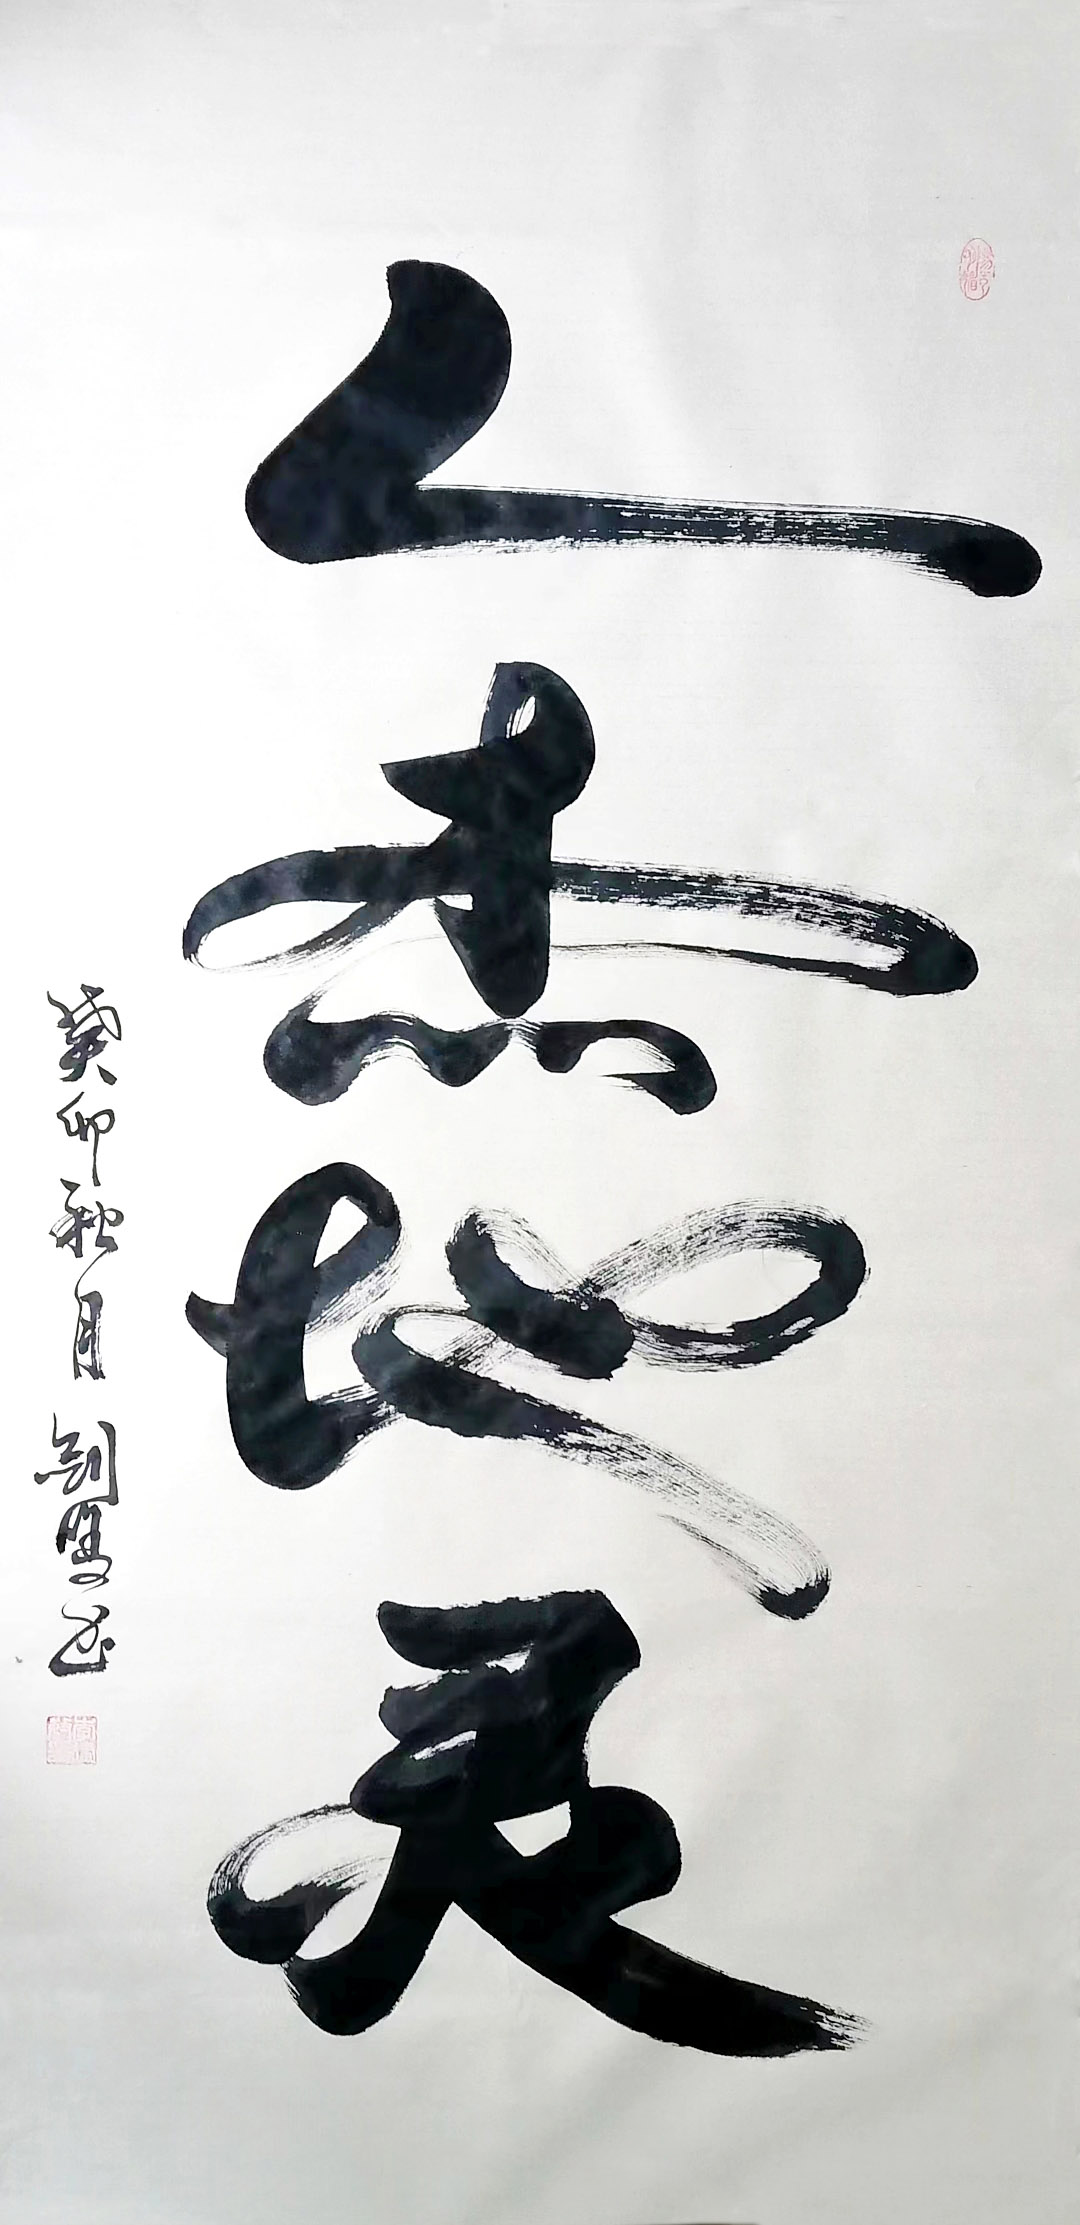 人杰地灵
癸卯秋月剑双书